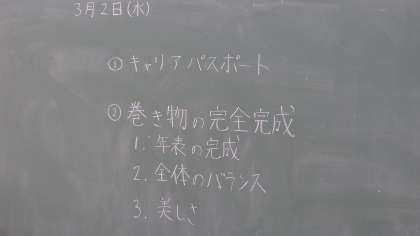 3月2日(水)
① キャリアパスポート
② 巻き物の完全完成
1. 年表の完成
2. 全体のバランス
3. 美しさ